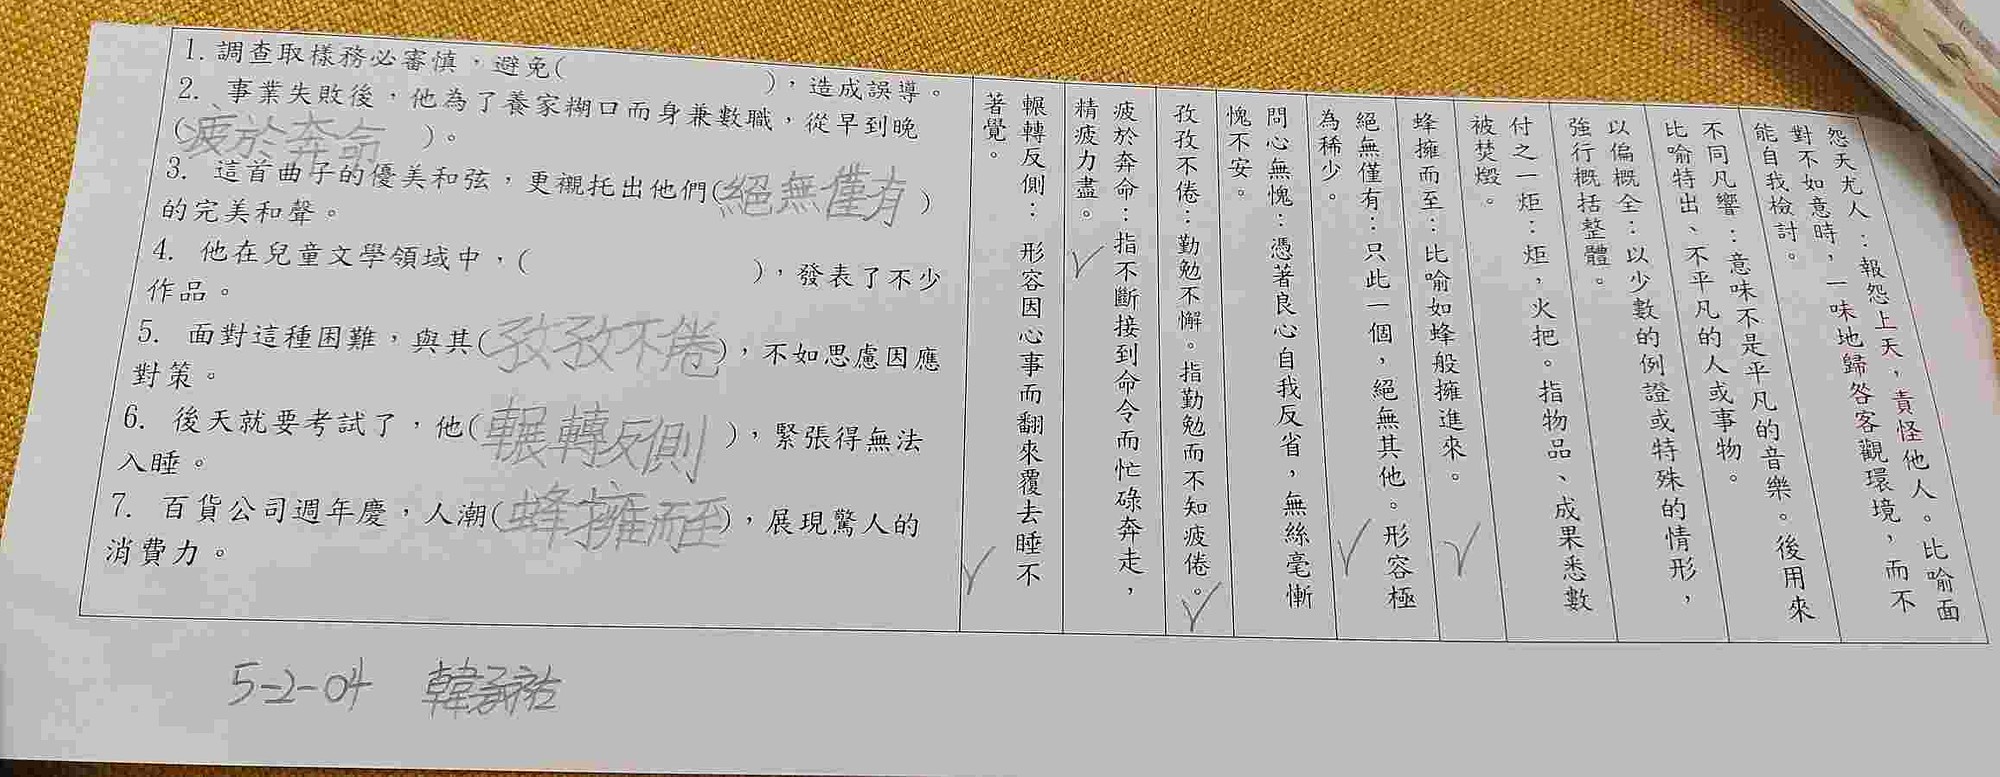 1. 調查取樣務必審慎，避免(          )，造成誤導。
2. 事業失敗後，他為了養家糊口而身兼數職，從早到晚
(疲於奔命)。
3. 這首曲子的優美和弦，更襯托出他們(絕無僅有)
的完美和聲。
4. 他在兒童文學領域中，(          )，發表了不少
作品。
5. 面對這種困難，與其(孜孜不倦)，不如思慮因應
對策。
6. 後天就要考試了，他(輾轉反側)，緊張得無法
入睡。
7. 百貨公司週年慶，人潮(蜂擁而至)，展現驚人的
消費力。
怨天尤人：報怨上天，責怪他人。比喻面
對不如意時，一味地歸咎客觀環境，而不
能自我檢討。
不同凡響：意味不是平凡的音樂。後用來
比喻特出、不平凡的人或事物。
以偏概全：以少數的例證或特殊的情形，
強行概括整體。
付之一炬：炬，火把。指物品、成果悉數
被焚燬。
蜂擁而至：比喻如蜂般擁進來。
絕無僅有：只此一個，絕無其他。形容極
為稀少。
問心無愧：憑著良心自我反省，無絲毫慚
愧不安。
孜孜不倦：勤勉不懈。指勤勉而不知疲倦。
疲於奔命：指不斷接到命令而忙碌奔走，
精疲力盡。
輾轉反側：形容因心事而翻來覆去睡不
著覺。
5-2-04 韓承祐